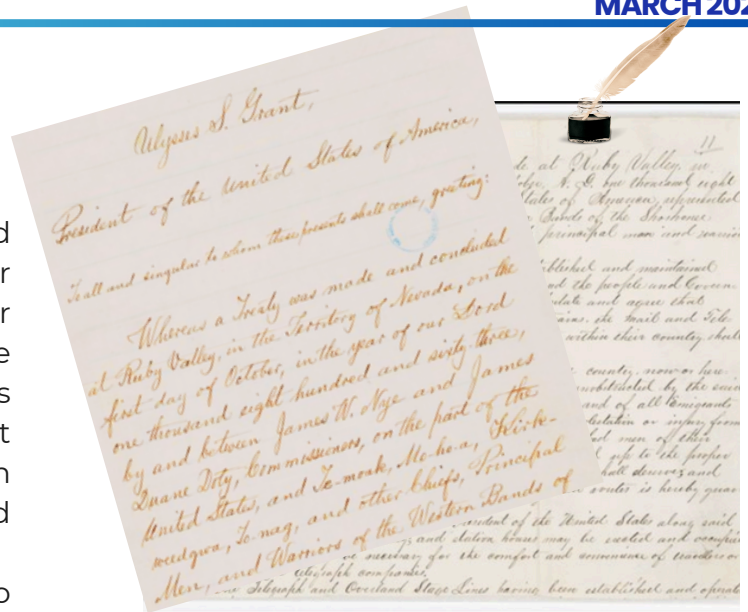 MARCH 202
Ulysses S. Grant,
President of the United States of America,
To all and singular to whom these presents shall come, greeting:
Whereas a Treaty was made and concluded
at Ruby Valley, in the Territory of Nevada, on the
first day of October, in the year of our Lord
one thousand eight hundred and sixty three,
by and between James W. Nye and James
Duane Doty, Commissioners, on the part of the
United States, and Te-moak, Mo-ho-a, Kirk-
weedgwa, To-nag, and other Chiefs, Principal
Men, and Warriors of the Western Bands of
11
at Ruby Valley, in
A. D. one thousand eight
States of America, represented
Bands of the Shoshonee
principal men and
established and maintained
the people and Govern
and agree that
the mail and
within their country shall
country, now or here
unobstructed by the
and of all Emigrants
or injury from
men of their
up to the proper
shall deserve, and
routes is hereby
of the United States along said
and station houses may be erected and
necessary for the comfort and convenience of travelers or
telegraph companies.
Telegraph and Overland Stage Lines having been established and
d
r
r
e
s
t
n
d
o